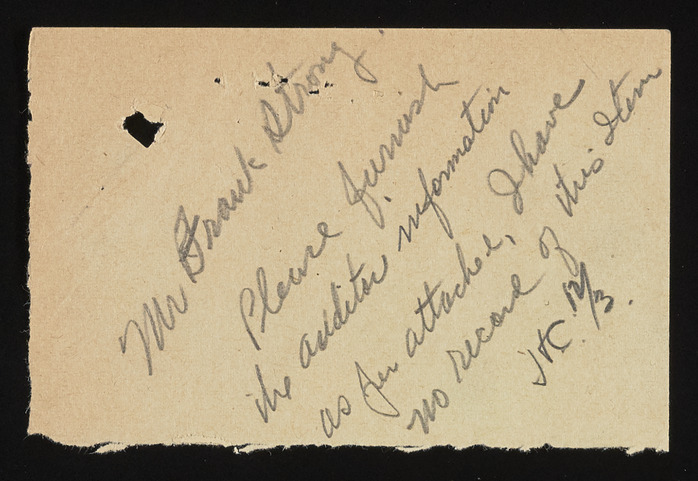 Mr Frank Strong.
Please furnish
the auditor information
as per attached, I have
no record of this Item
12/3.